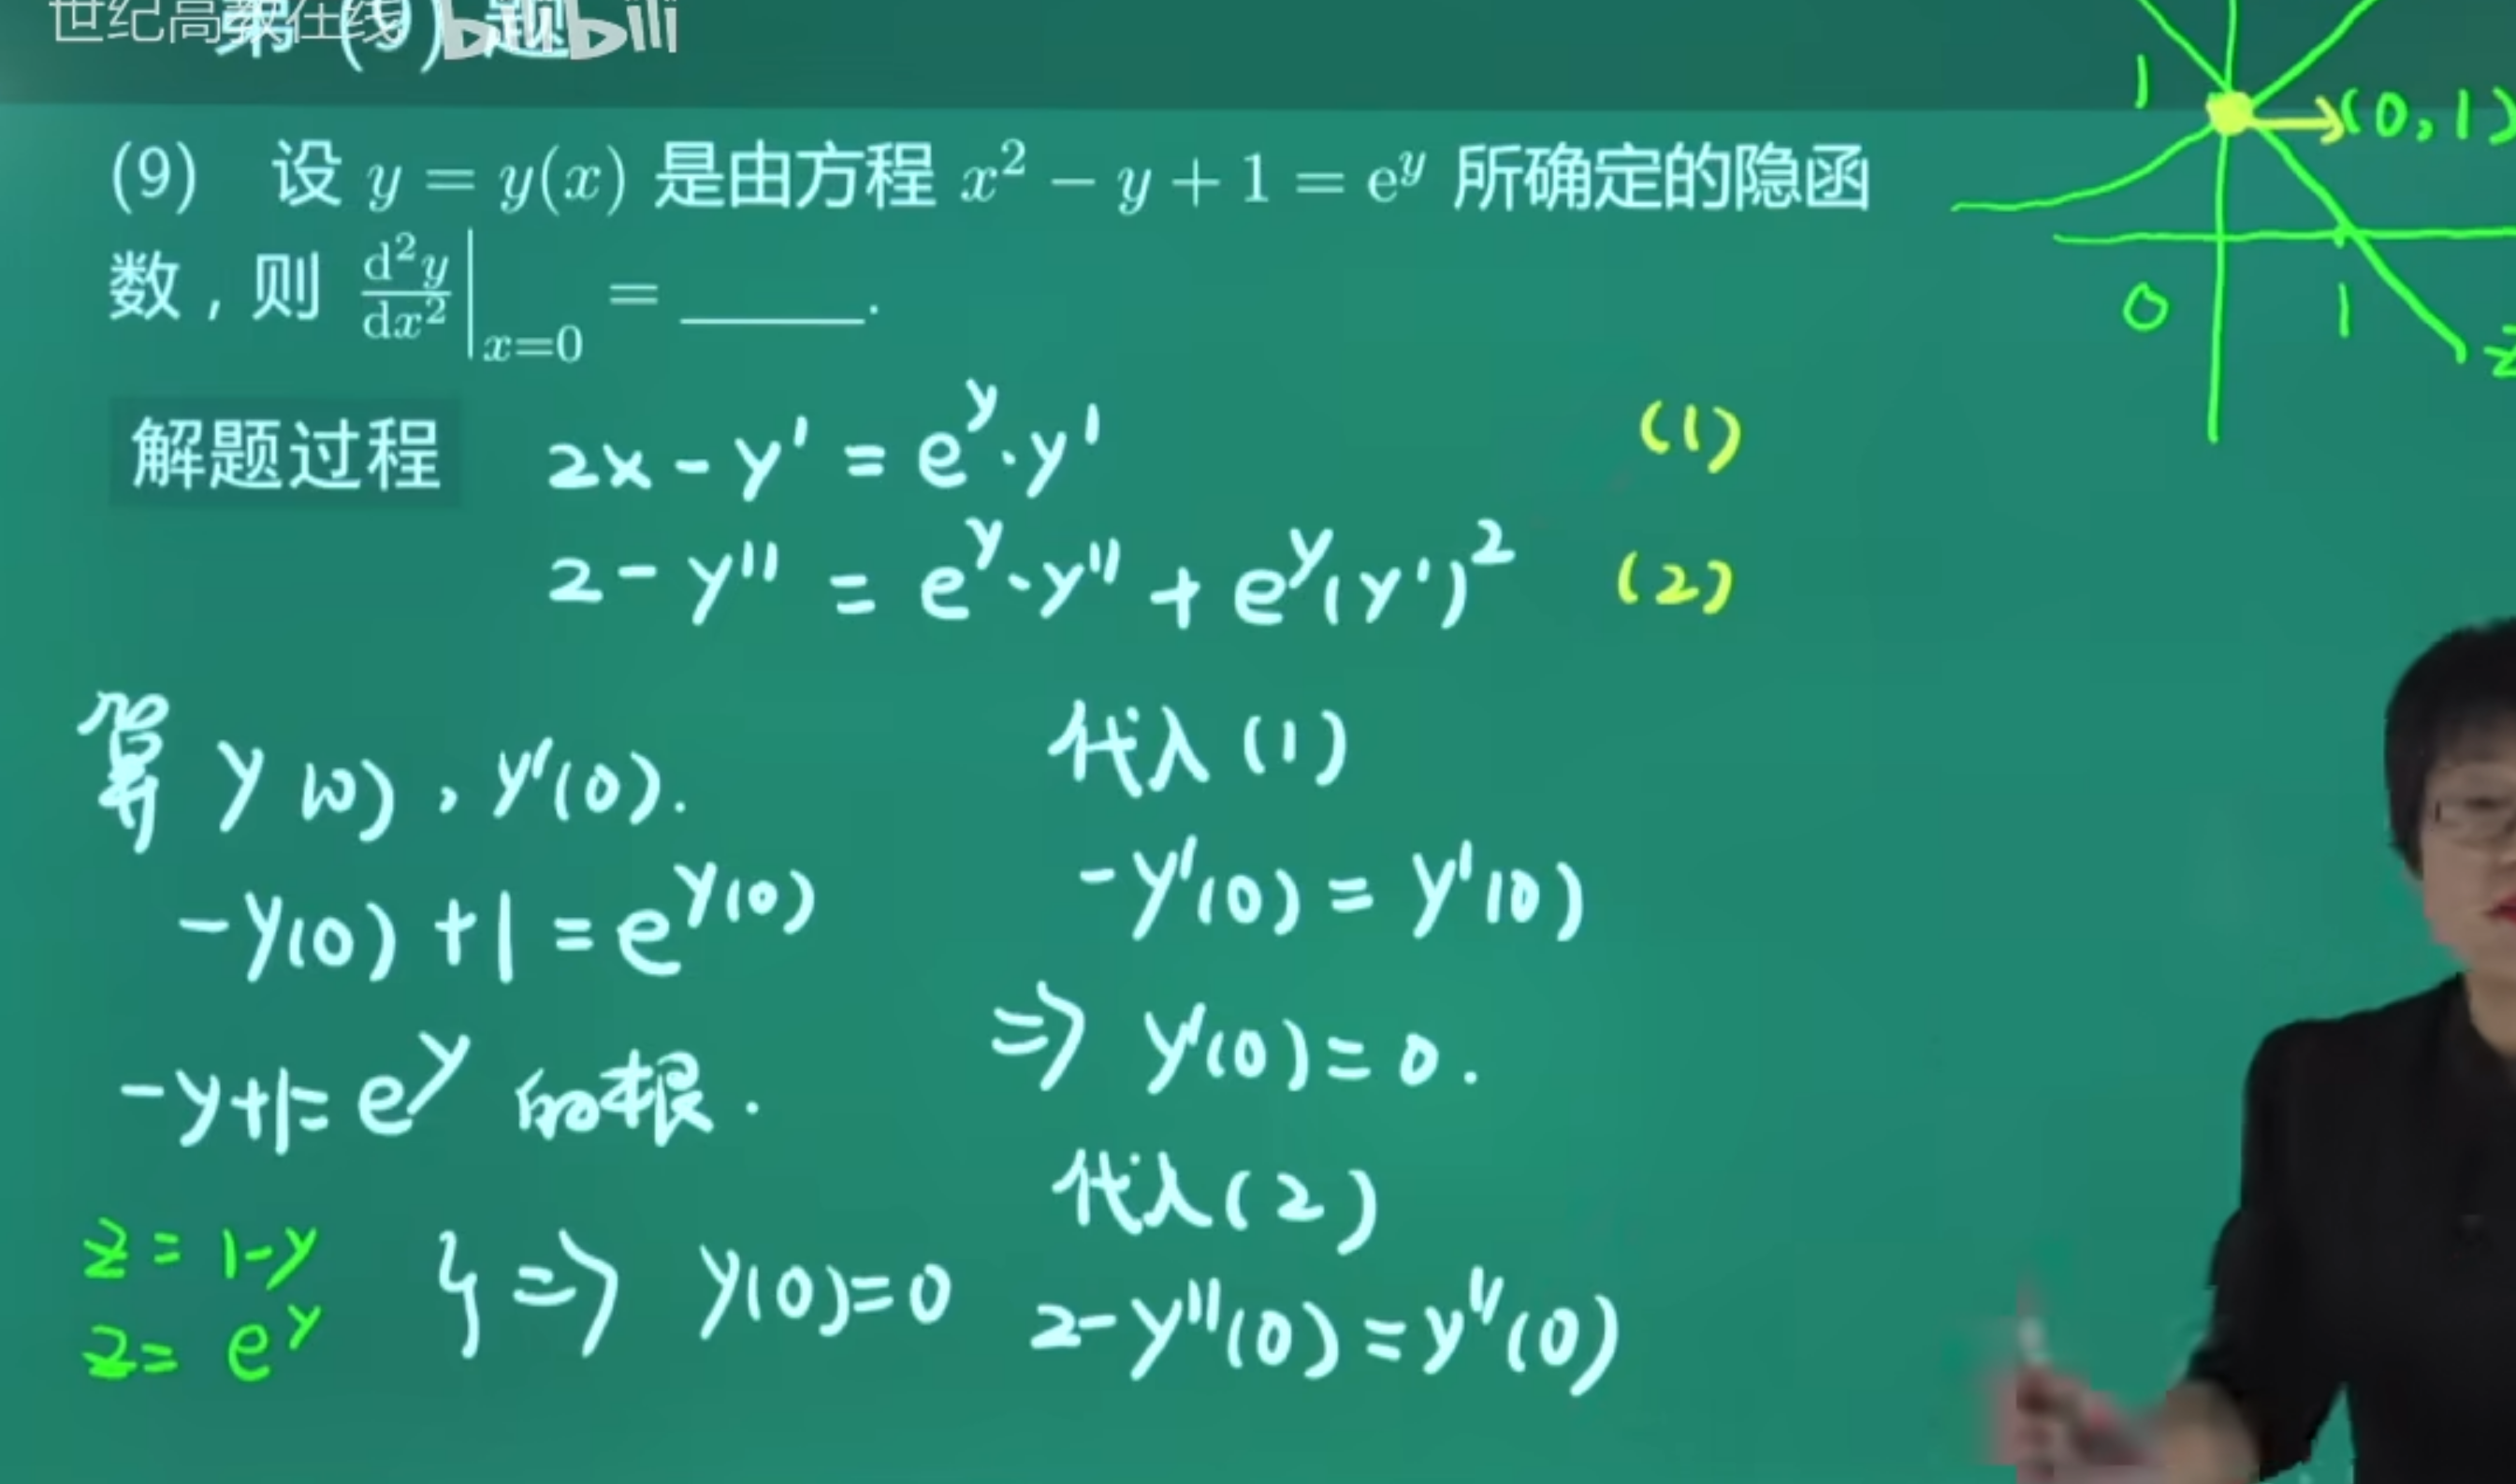 世纪高教在线 bilibili
第 (9) 题
(9) 设 y = y(x) 是由方程 x² − y + 1 = e^y 所确定的隐函
数，则 d²y/dx² |x=0 = ______.
解题过程
2x - y' = e^y · y' (1)
2 - y'' = e^y · y'' + e^y (y')² (2)
算 y(0), y'(0).
-y(0) + 1 = e^y(0)
-y+1 = e^y 的根.
z = 1-y
z = e^y
} ⇒ y(0)=0
代入(1)
-y'(0) = y'(0)
⇒ y'(0) = 0.
代入(2)
2-y''(0) = y''(0)
1
(0,1)
0
1